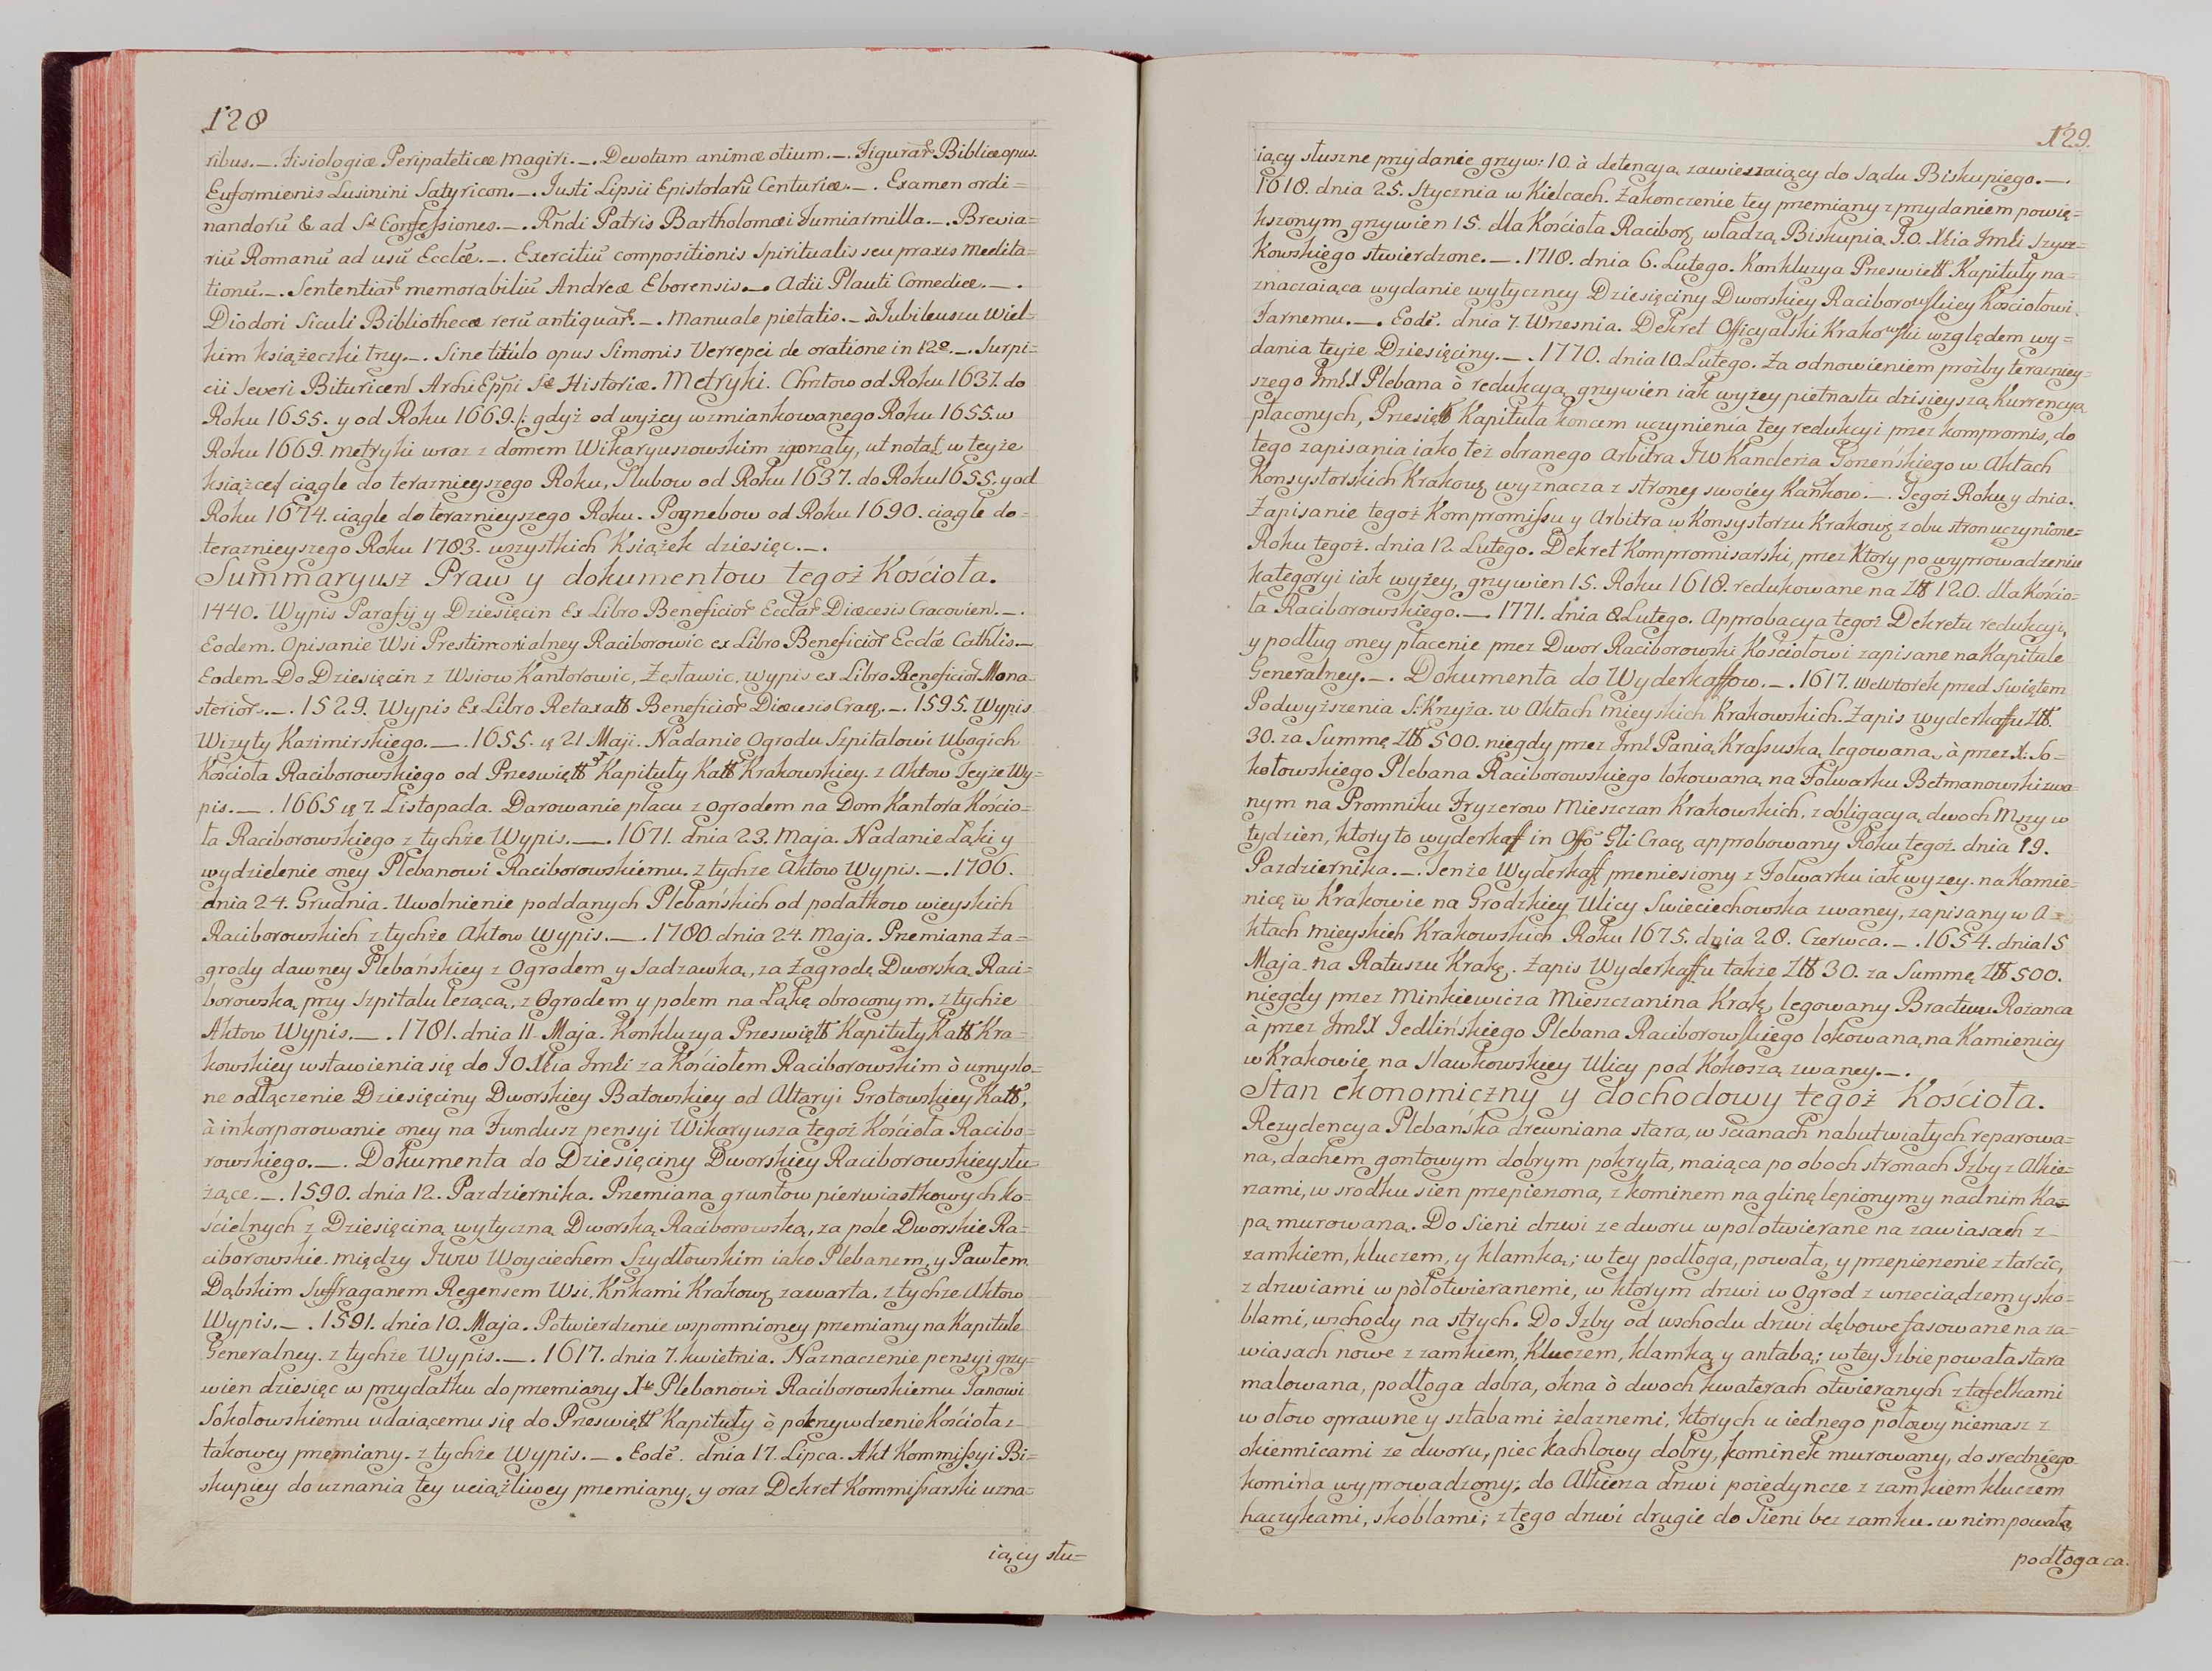 128
ribus._. Fisiologiæ Peripateticæ Magiri._. Devotam animæ otium._. Figurar̃ Bibliæ opus.
Euformienis Lusinini Satyricon._. Justi Lipsii Epistolarũ Centuriæ._. Examen ordi=
nandorũ & ad S. Confessiones._. Rndi Patris Bartholomæi Jumiarmilla._. Brevia=
riũ Romanũ ad usũ Eccłæ._. Exercitiũ compositionis Spiritualis seu praxis Medita=
tionũ._. Sententiar̃ memorabiliũ Andreæ Eborensis._. Actii Plauti Comediæ._.
Diodori Siculi Bibliothecæ rerũ antiquar̃._. Manuale pietatis._. ò Jubileuszu Wiel=
kim książeczki trzy._. Sine titulo opus Simonis Verrepei de oratione in 12o._. Surpi=
cii Severi Bituricen ArchiEppi Sæ Historiæ. Metryki. Chrztow od Roku 1637. do
Roku 1655. y od Roku 1669./: gdyż od wyżey wzmiankowanego Roku 1655. w
Roku 1669. metryki wraz z domem Wikaryuszowskim zgorzały, ut notat w teyże
książce/ ciągle do teraznieyszego Roku, Slubow od Roku 1637. do Roku 1655. y od
Roku 1674. ciągle do teraznieyszego Roku. Pogrzebow od Roku 1690. ciągle do=
teraznieyszego Roku 1783. wszystkich Książek dziesięc._.
Summaryusz Praw y dokumentow tegoż Kościoła.
1440. Wypis Parafij y Dziesięcin Ex Libro Beneficior̃ Eccłar̃ Diæcesis Cracovien._.
Eodem. Opisanie Wsi Prestimonialney Raciborowic ex Libro Beneficior̃ Eccłæ Cathlis._
Eodem. Do Dziesięcin z Wsiow Kantorowic, Zesławic, wypis ex Libro Beneficior̃ Mona=
sterior̃._. 1529. Wypis Ex Libro Retaxatt Beneficior̃ Diæcesis Crac._. 1595. Wypis
Wizyty Kazimirskiego._. 1655. 21 Maji. Nadanie Ogrodu Szpitalowi Ubogich
Kościoła Raciborowskiego od Prześwięttʸ Kapituły Kattʸ Krakowskiey. z Aktow Teyże Wy=
pis._. 1665 7. Listopada. Darowanie placu z ogrodem na Dom Kantora Kościo=
ła Raciborowskiego z tychże Wypis._. 1671. dnia 23. Maja. Nadanie Łąki y
wydzielenie oney Plebanowi Raciborowskiemu. z tychże Aktow Wypis._. 1706.
dnia 24. Grudnia. Uwolnienie poddanych Plebańskich od podatkow wieyskich
Raciborowskich z tychże Aktow Wypis._. 1780. dnia 24. Maja. Przemiana Za=
grody dawney Plebańskiey z Ogrodem y sadzawką, za Zagrodę Dworską Raci=
borowską przy Szpitalu leżącą, z Ogrodem y polem na Łąkę obroconym. z tychże
Aktow Wypis._. 1781. dnia 11. Maja. Konkluzya Prześwięttʸ Kapituły Kattʸ Kra=
kowskiey wstawienia się do JO Xcia Jmći za Kościołem Raciborowskim ò umyślo=
ne odłączenie Dziesięciny Dworskiey Batowskiey od Altaryi Grotowskiey Kattʸ,
à inkorporowanie oney na Fundusz pensyi Wikaryusza tegoż Kościoła Racibo=
rowskiego._. Dokumenta do Dziesięciny Dworskiey Raciborowskiey słu=
żące._. 1590. dnia 12. Pazdziernika. Przemiana gruntow pierwiastkowych ko=
ścielnych z Dziesięciną wytyczną Dworską Raciborowską, za pole Dworskie Ra=
ciborowskie. między JWW Woyciechem Szydłowskim iako Plebanem, y Pawłem
Dąbskim Suffraganem Regensem Wsi. Knkami Krakow zawarta. z tychże Aktow
Wypis._. 1591. dnia 10. Maja. Potwierdzenie wspomnioney przemiany na Kapitule
Generalney. z tychże Wypis._. 1617. dnia 7. kwietnia. Naznaczenie pensyi grzy=
wien dziesięc w przydatku do przemiany X Plebanowi Raciborowskiemu Janowi
Sokołowskiemu udaiącemu się do Przeświętt Kapituły ò pokrzywdzenie Kościoła z
takowey przemiany. z tychże Wypis._. Eodẽ. dnia 17. Lipca. Akt Kommissyi Bi=
skupiey do uznania tey uciążliwey przemiany, y oraz Dekret Kommissarski uzna=
iący słu=
129.
iący słuszne przydanie grzyw: 10. à detencyą zawieszaiący do Sądu Biskupiego._.
1618. dnia 25. Stycznia w Kielcach. Zakonczenie tey przemiany z przydaniem powię=
kszonym grzywien 15. dla Kościoła Racibor władzą Biskupią J.O. Xcia Jmći Szysz=
kowskiego stwierdzone._. 1718. dnia 6. Lutego. Konkluzya Przeświett Kapituły na=
znaczaiąca wydanie wytyczney Dziesięciny Dworskiey Raciborowskiey Kościołowi
Farnemu._. Eodẽ. dnia 7. Wrzesnia. Dekret Officyalski Krakowski względem wy=
dania teyże Dziesięciny._. 1770. dnia 10. Lutego. Za odnowieniem prożby teraźniey=
szego JmćX Plebana ò redukcyą grzywien iak wyżey piętnastu dzisieyszą Kurrencyą
płaconych, Przesiętt Kapituła końcem uczynienia tey redukcyi przez kompromis, do
tego zapisania iako też obranego Arbitra JW Kanclerza Gorzeńskiego w Aktach
Konsystorskich Krakow wyznacza z strony swoiey Kańkow._. Tegoż Roku y dnia.
Zapisanie tegoż Kompromissu y Arbitra w Konsystorzu Krakow z obu stron uczynione=
Roku tegoż. dnia 12. Lutego. Dekret Kompromisarski, przez Ktory po wyprowadzeniu
kategoryi iak wyżey, grzywien 15. Roku 1618. redukowane na Złtt 120. dla Kościo=
ła Raciborowskiego._. 1771. dnia 8 Lutego. Approbacya tegoż Dekretu redukcyi,
y podług oney płacenie przez Dwor Raciborowski Kościołowi zapisane na Kapitule
Generalney._. Dokumenta do Wyderkaffow._. 1617. We Wtorek przed Swiętem
Podwyższenia S. Krzyża. w Aktach Mieyskich Krakowskich. Zapis wyderkaffu Złtt.
30. za Summę Złtt 500. niegdy przez Jmć Panią Krassuską legowaną, à przez X. So=
kołowskiego Plebana Raciborowskiego lokowaną na Folwarku Betmanowski zwa=
nym na Promniku Fryzerow Mieszczan Krakowskich, z obligacyą dwoch Mszy w
tydzien, ktory to wyderkaff in Offõ Gli Crac approbowany Roku tegoż. dnia 19.
Pazdziernika._. Tenże Wyderkaff przeniesiony z Folwarku iak wyzey. na Kamie=
nicę w Krakowie na Grodzkiey Ulicy Swieciechowska zwaney, zapisany w A=
ktach Mieyskich Krakowskich Roku 1675. dnia 28. Czerwca._. 1654. dnia 15
Maja. na Ratuszu Krak. Zapis Wyderkaffu także Złtt 30. za Summę Złtt 500.
niegdy przez Minkiewicza Mieszczanina Krak legowany Bractwu Rożanca
à przez JmćX Jedlińskiego Plebana Raciborowskiego lokowaną na Kamienicy
w Krakowie na Sławkowskiey Ulicy pod Kokoszą zwaney._.
Stan ekonomiczny y dochodowy tegoż Kościoła.
Rezydencya Plebańska drewniana stara, w ścianach nabutwiałych reparowa=
na, dachem gontowym dobrym pokryta, maiąca po oboch stronach Izby z Alkie=
rzami, w srodku sien przepierzona, z kominem na glinę lepionym y nad nim Ka=
pą murowaną. Do Sieni drzwi ze dworu wpołotwierane na zawiasach z
zamkiem, kluczem, y klamką; w tey podłoga, powała, y przepierzenie z tarcic,
z drzwiami wpòłotwieranemi, w ktorym drzwi w Ogrod z wrzeciądzem y sko=
blami, wschody na strych. Do Izby od wschodu drzwi dębowe fasowane na za=
wiasach nowe z zamkiem, Kluczem, klamką y antabą; w tey Izbie powała stara
malowana, podłoga dobra, okna ò dwoch kwaterach otwieranych z tafelkami
w ołow oprawne y sztabami żelaznemi, ktorych u iednego połowy niemasz z
okiennicami ze dworu, piec kachlowy dobry, kominek murowany, do sredniego
komina wyprowadzony; do Alkierza drzwi poiedyncze z zamkiem kluczem
haczykami, skoblami; z tego drzwi drugie do Sieni bez zamku. w nim powała,
podłoga ca.